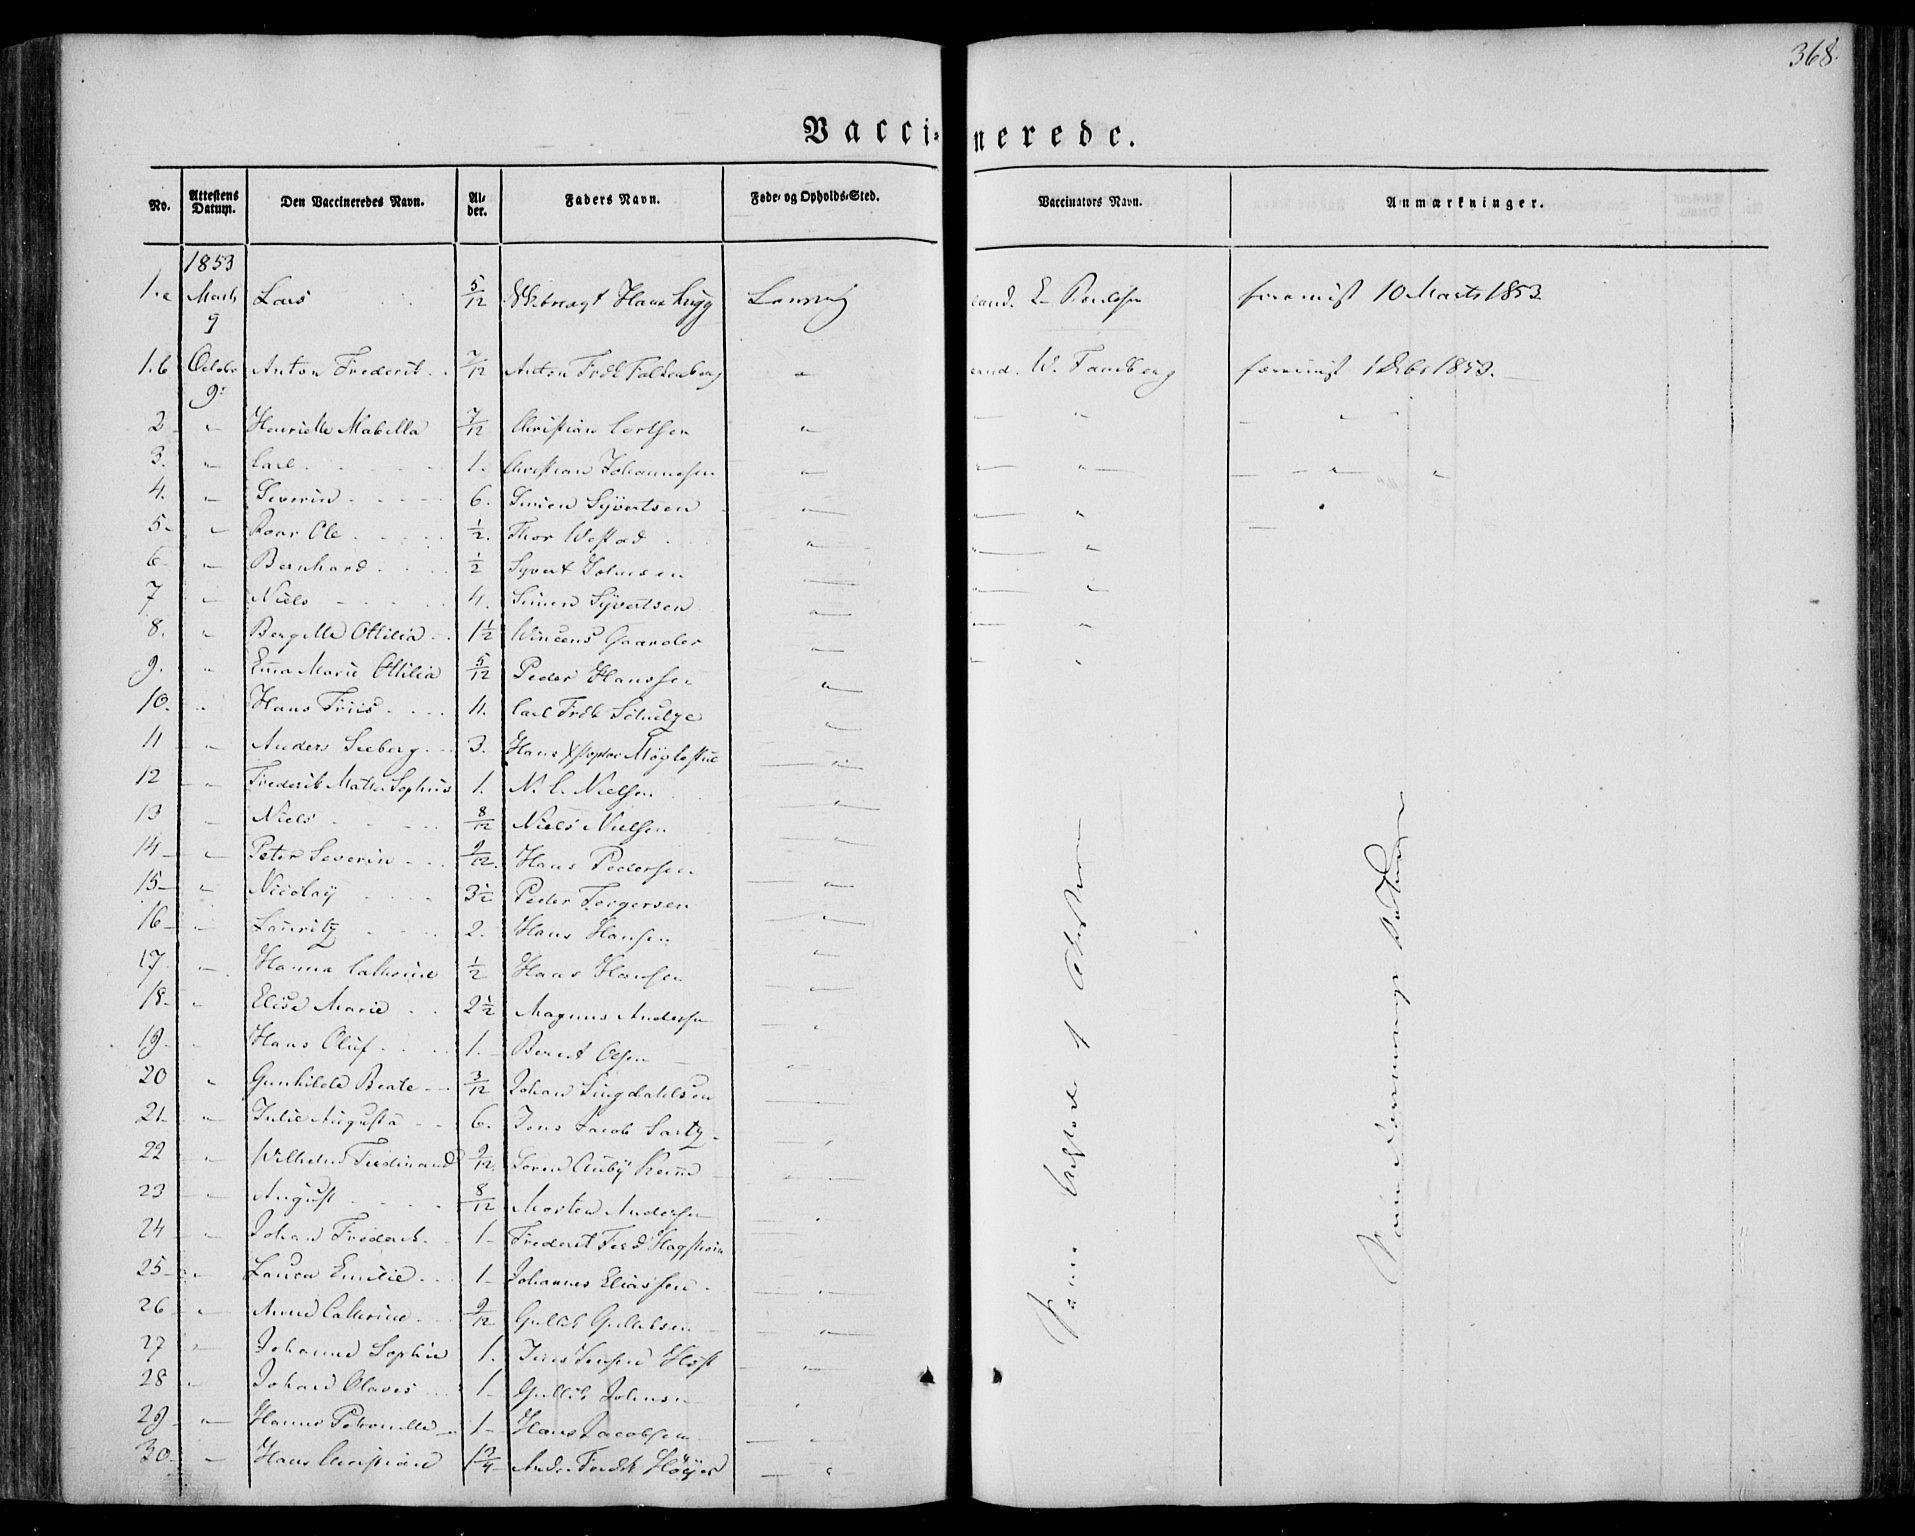 368.
Vacci- nerede.
No. Attestens Datum. Den Vaccineredes Navn. Al- der. Faders Navn. Føde- og Opholds-Sted. Vaccinators Navn. Anmærkninger.
1853
1.a Marts 9 Lars 5/12 Hans Laurvig 10 Marts 1853.
1.b Octobr 9 Anton Frederik 7/12 Anton Frdk Falkenberg " W. Tandberg 1853.
2 " Henriette Mabella 7/12 Christian " " "
3. " Carl 1. Christian Johannesen " " " " "
4. " Severin 6. Simen Syvertsen " "
5. " Roar Ole 1/2. Thor Westad " "
6. " Bernhard 1/2 Syvert Johnsen " "
7 " Niels 4. Simen Syvertsen " "
8. " Bergitte Ottilia 1 1/2 Wincens Gaarder " "
9. " Emma Marie Ottilia 5/12 Peder Hanssen "
10. " Hans Friis 11. Carl Frdk Schulze "
11 " Anders Seeberg 3. Hans "
12 " Frederik Sophus 1. N. C. Nielsen "
13 " Niels 8/12 Niels Nielsen "
14 " Peter Severin 9/12. Hans Pedersen "
15 " Nicolay 3 1/2 Peder Torgersen "
16 " Lauritz 2. Hans Hansen "
17 " Hanna Cathrine 1/2 Hans Hansen "
18 " Elise Marie 2 1/2 Magnus Andersen "
19. " Hans Oluf 1. Bernt Olsen "
20 " Gunhilde Beate 3/12 Johan "
21. " Julie Augusta 6. Jens Jacob "
22 " Wilhelm Ferdinand 9/12. Søren "
23 " August 8/12 Morten Andersen "
24 " Johan Frederik 1 Frederik Ferd "
25 " Laura Emilie 1 Johannes Eliassen "
26 " Anne Cathrine 9/12 Gullik Gulliksen "
27 " Johanne Sophie 1. Jens Jensen "
28 " Johan Olaves 1 Gullik Johnsen "
29 " Hanne Petronille 1 Hans Jacobsen "
30 " Hans Christian 1 3/4 Fredk Høyer "